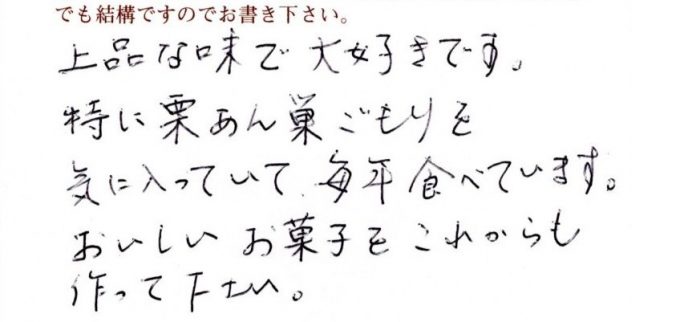 でも結構ですのでお書き下さい。
上品な味で大好きです。
特に栗あん巣ごもりを
気に入っていて、毎年食べています。
おいしいお菓子をこれからも
作って下さい。